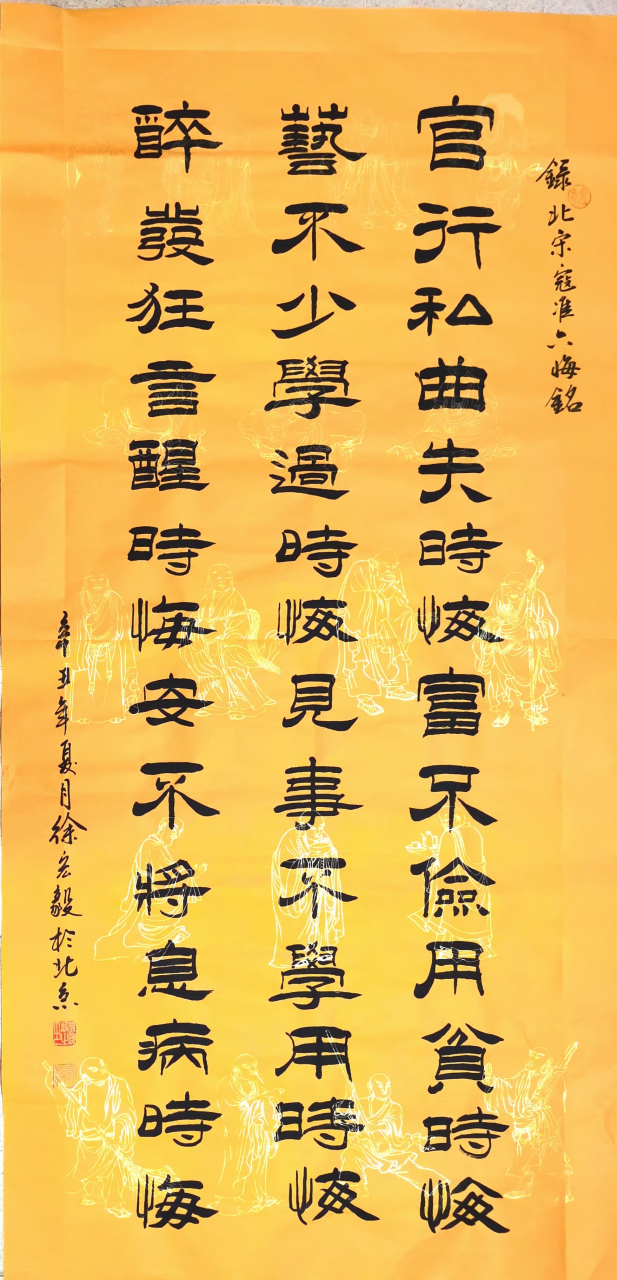 録北宋寇准六悔銘
官行私曲失時悔富不儉用貧時悔
藝不少學過時悔見事不學用時悔
醉發狂言醒時悔安不將息病時悔
辛丑年夏月徐宏毅於北京